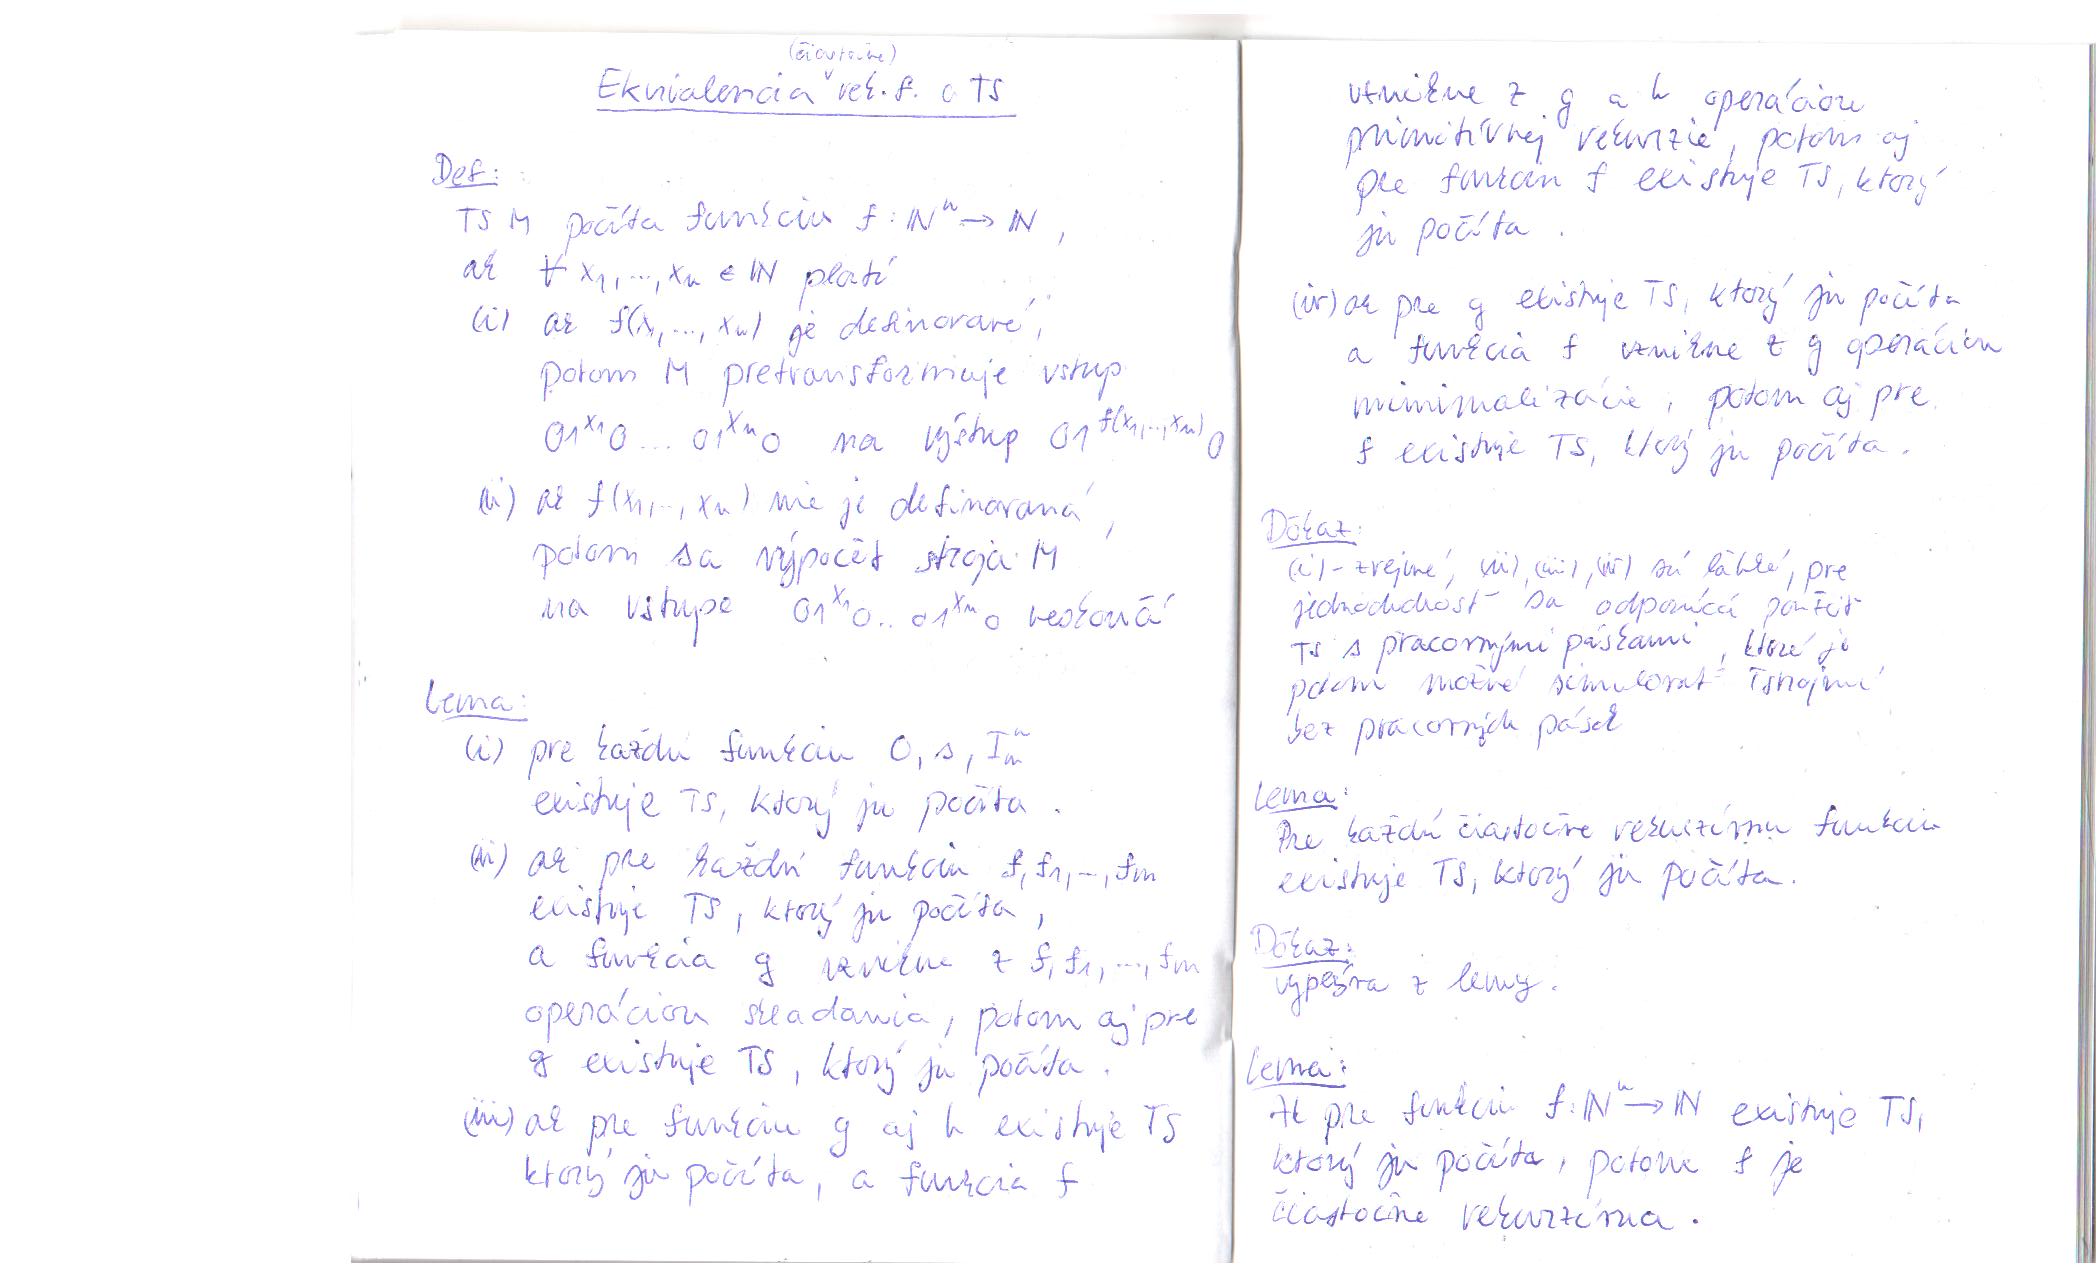 (čiastočne)
Ekvivalencia ˇ rek. f. a TS
Def:
TS M počíta funkciu f : ℕⁿ → ℕ ,
ak ∀ x₁, ..., xₙ ∈ ℕ platí
(i) ak f(x₁, ..., xₙ) je definované,
potom M pretransformuje vstup
01^x₁0 ... 01^xₙ0 na výstup 01^f(x₁,..,xₙ)0
(ii) ak f(x₁, .., xₙ) nie je definovaná,
potom sa výpočet stroja M
na vstupe 01^x₁0 .. 01^xₙ0 neskončí
Lema:
(i) pre každú funkciu 0, s, Iⁿₘ
existuje TS, ktorý ju počíta .
(ii) ak pre každú funkciu f, f₁, .., fₘ
existuje TS, ktorý ju počíta ,
a funkcia g vznikne z f, f₁, ..., fₘ
operáciou skladania, potom aj pre
g existuje TS, ktorý ju počíta .
(iii) ak pre funkciu g aj h existuje TS
ktorý ju počíta, a funkcia f
vznikne z g a h operáciou
primitívnej rekurzie, potom aj
pre funkciu f existuje TS, ktorý
ju počíta .
(iv) ak pre g existuje TS, ktorý ju počíta
a funkcia f vznikne z g operáciou
minimalizácie, potom aj pre
f existuje TS, ktorý ju počíta .
Dôkaz:
(i) - zrejmé, (ii), (iii), (iv) sú ľahké, pre
jednoduchosť sa odporúča použiť
TS s pracovnými páskami, ktoré je
potom možné simulovať Tstrojmi
bez pracovných pások
Lema:
Pre každú čiastočne rekurzívnu funkciu
existuje TS, ktorý ju počíta.
Dôkaz:
vyplýva z lemy.
Lema:
Ak pre funkciu f : ℕⁿ → ℕ existuje TS,
ktorý ju počíta, potom f je
čiastočne rekurzívna .